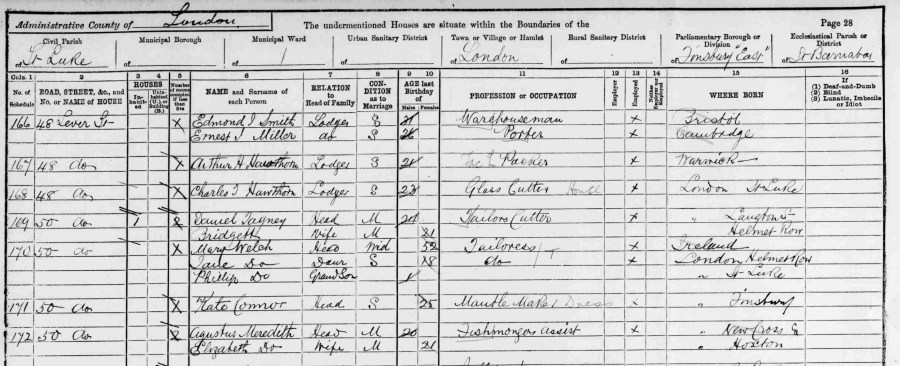 Administrative County of London
The undermentioned Houses are situate within the Boundaries of the
Page 28
Civil Parish
of St Luke
Municipal Borough
of
Municipal Ward
of
Urban Sanitary District
of
Town or Village or Hamlet
of London
Rural Sanitary District
of
Parliamentary Borough or Division
of Finsbury "East"
Ecclesiastical Parish or District
of St Barnabas
Cols. 1 2 3 4 5 6 7 8 9 10 11 12 13 14 15 16
No. of Schedule
ROAD, STREET, &c., and No. or NAME of HOUSE
HOUSES
NAME and Surname of each Person
RELATION to Head of Family
CONDITION as to Marriage
AGE last Birthday of
Males Females
PROFESSION or OCCUPATION
Employer
Employed
WHERE BORN
If
(1) Deaf-and-Dumb
(2) Blind
(3) Lunatic, Imbecile or Idiot
166 48 Lever St X Edmond J Smith Lodger S 21 Warehouseman X Bristol
Ernest J Miller do S 26 Porter X Cambridge
167 48 do X Arthur H Hawthorn Lodger S 21 Packer X Warwick
168 48 do X Charles T Hawthorn Lodger S 23 Glass Cutter X London St Luke
169 50 do 1 2 Daniel Tagney Head M 20 Tailors Cutter X "
Bridgett Wife M 21 Helmet Row
170 50 do X Mary Welch Head Wid 52 Tailoress X Ireland
Jane Do Daur S 18 do X London Helmet Row
Phillip Do Grand Son 1 " St Luke
171 50 do X Kate Connor Head S 25 Mantle Maker Dress X " Finsbury
172 50 do 2 Agustus Meredith Head M 20 Fishmongers Assist X " New Cross
Elizabeth Do Wife M 21 " Hoxton